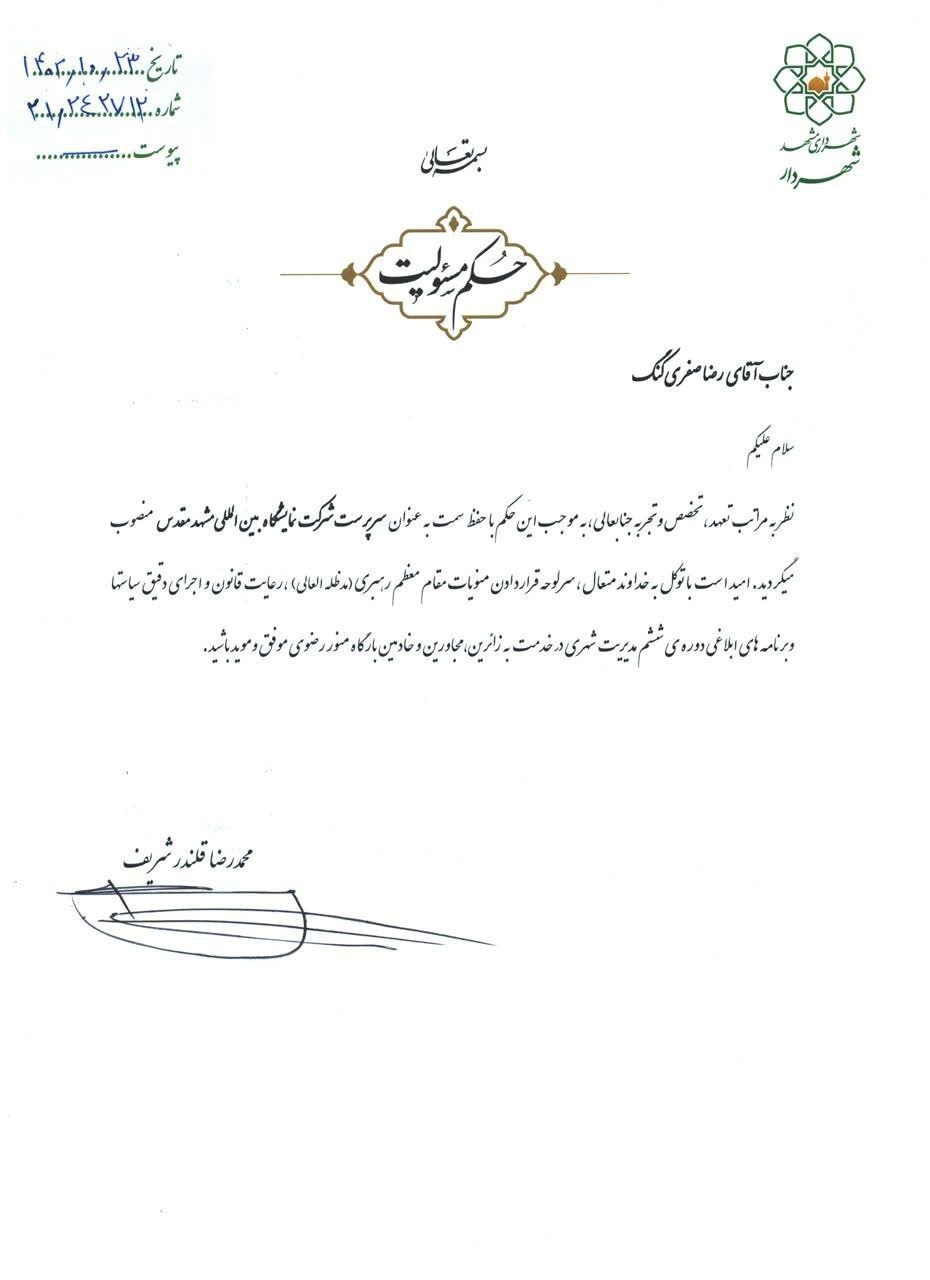 شهرداری مشهد
شهردار
تاریخ ۱۴۰۲/۱۰/۲۳
شماره
پیوست
بسمه تعالی
حکم مسئولیت
جناب آقای رضا صفری گنگ
سلام علیکم
نظر به مراتب تعهد، تخصص و تجربه جنابعالی، به موجب این حکم با حفظ سمت به عنوان سرپرست شرکت نمایشگاه بین المللی مشهد مقدس منصوب
میگردید. امید است با توکل به خداوند متعال، سرلوحه قرار دادن منویات مقام معظم رهبری (مدظله العالی)، رعایت قانون و اجرای دقیق سیاستها
و برنامه های ابلاغی دوره ی ششم مدیریت شهری در خدمت به زائرین، مجاورین و خادمین بارگاه منور رضوی موفق و موید باشید.
محمدرضا قلندر شریف